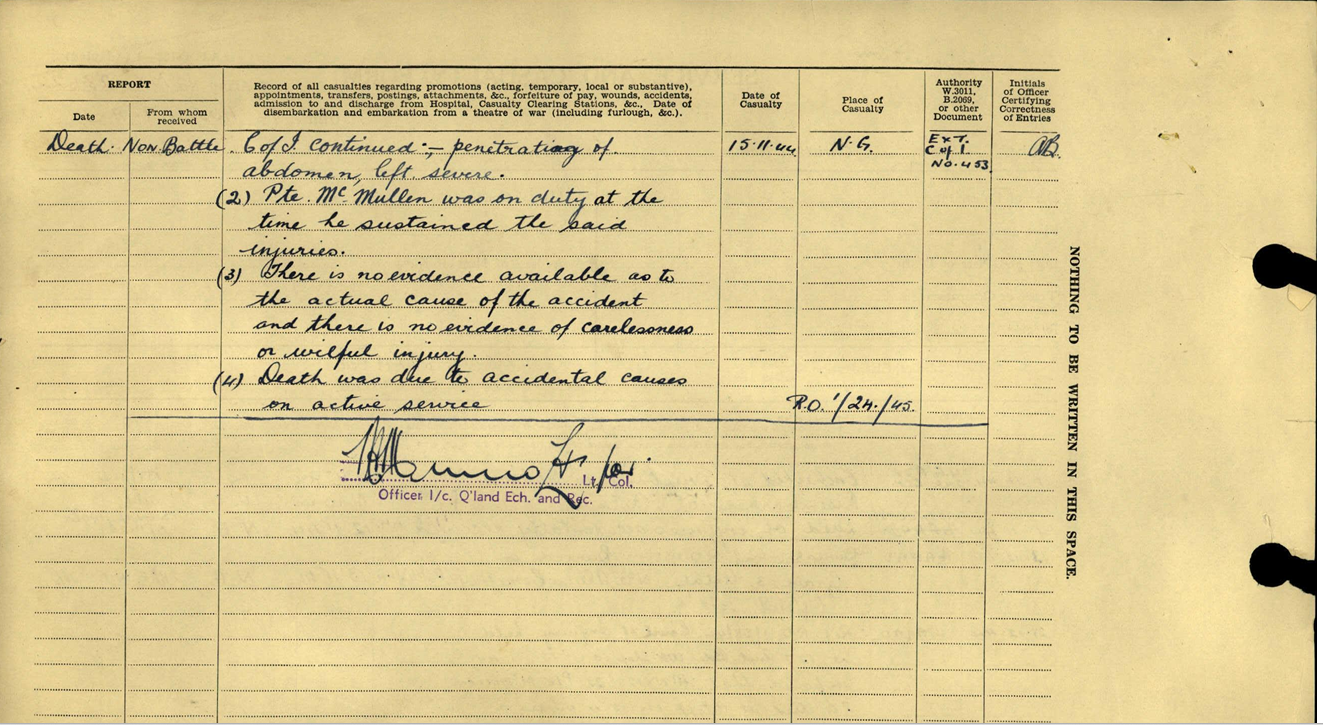 REPORT
Date
From whom
received
Record of all casualties regarding promotions (acting, temporary, local or substantive),
appointments, transfers, postings, attachments, &c., forfeiture of pay, wounds, accidents,
admission to and discharge from Hospital, Casualty Clearing Stations, &c., Date of
disembarkation and embarkation from a theatre of war (including furlough, &c.).
Date of
Casualty
Place of
Casualty
Authority
W.3011,
B.2069,
or other
Document
Initials
of Officer
Certifying
Correctness
of Entries
Death. Non Battle. C of I. continued :- penetrating of 15.11.44 N.G. Ext. C of I. No. 453
abdomen, left. severe.
(2) Pte. McMullen was on duty at the
time he sustained the said
injuries.
(3) There is no evidence available as to
the actual cause of the accident
and there is no evidence of carelessness
or wilful injury.
(4) Death was due to accidental causes
on active service R.O. 1/24/45.
Lt. Col.
Officer I/c. Q'land Ech. and Rec.
NOTHING TO BE WRITTEN IN THIS SPACE.